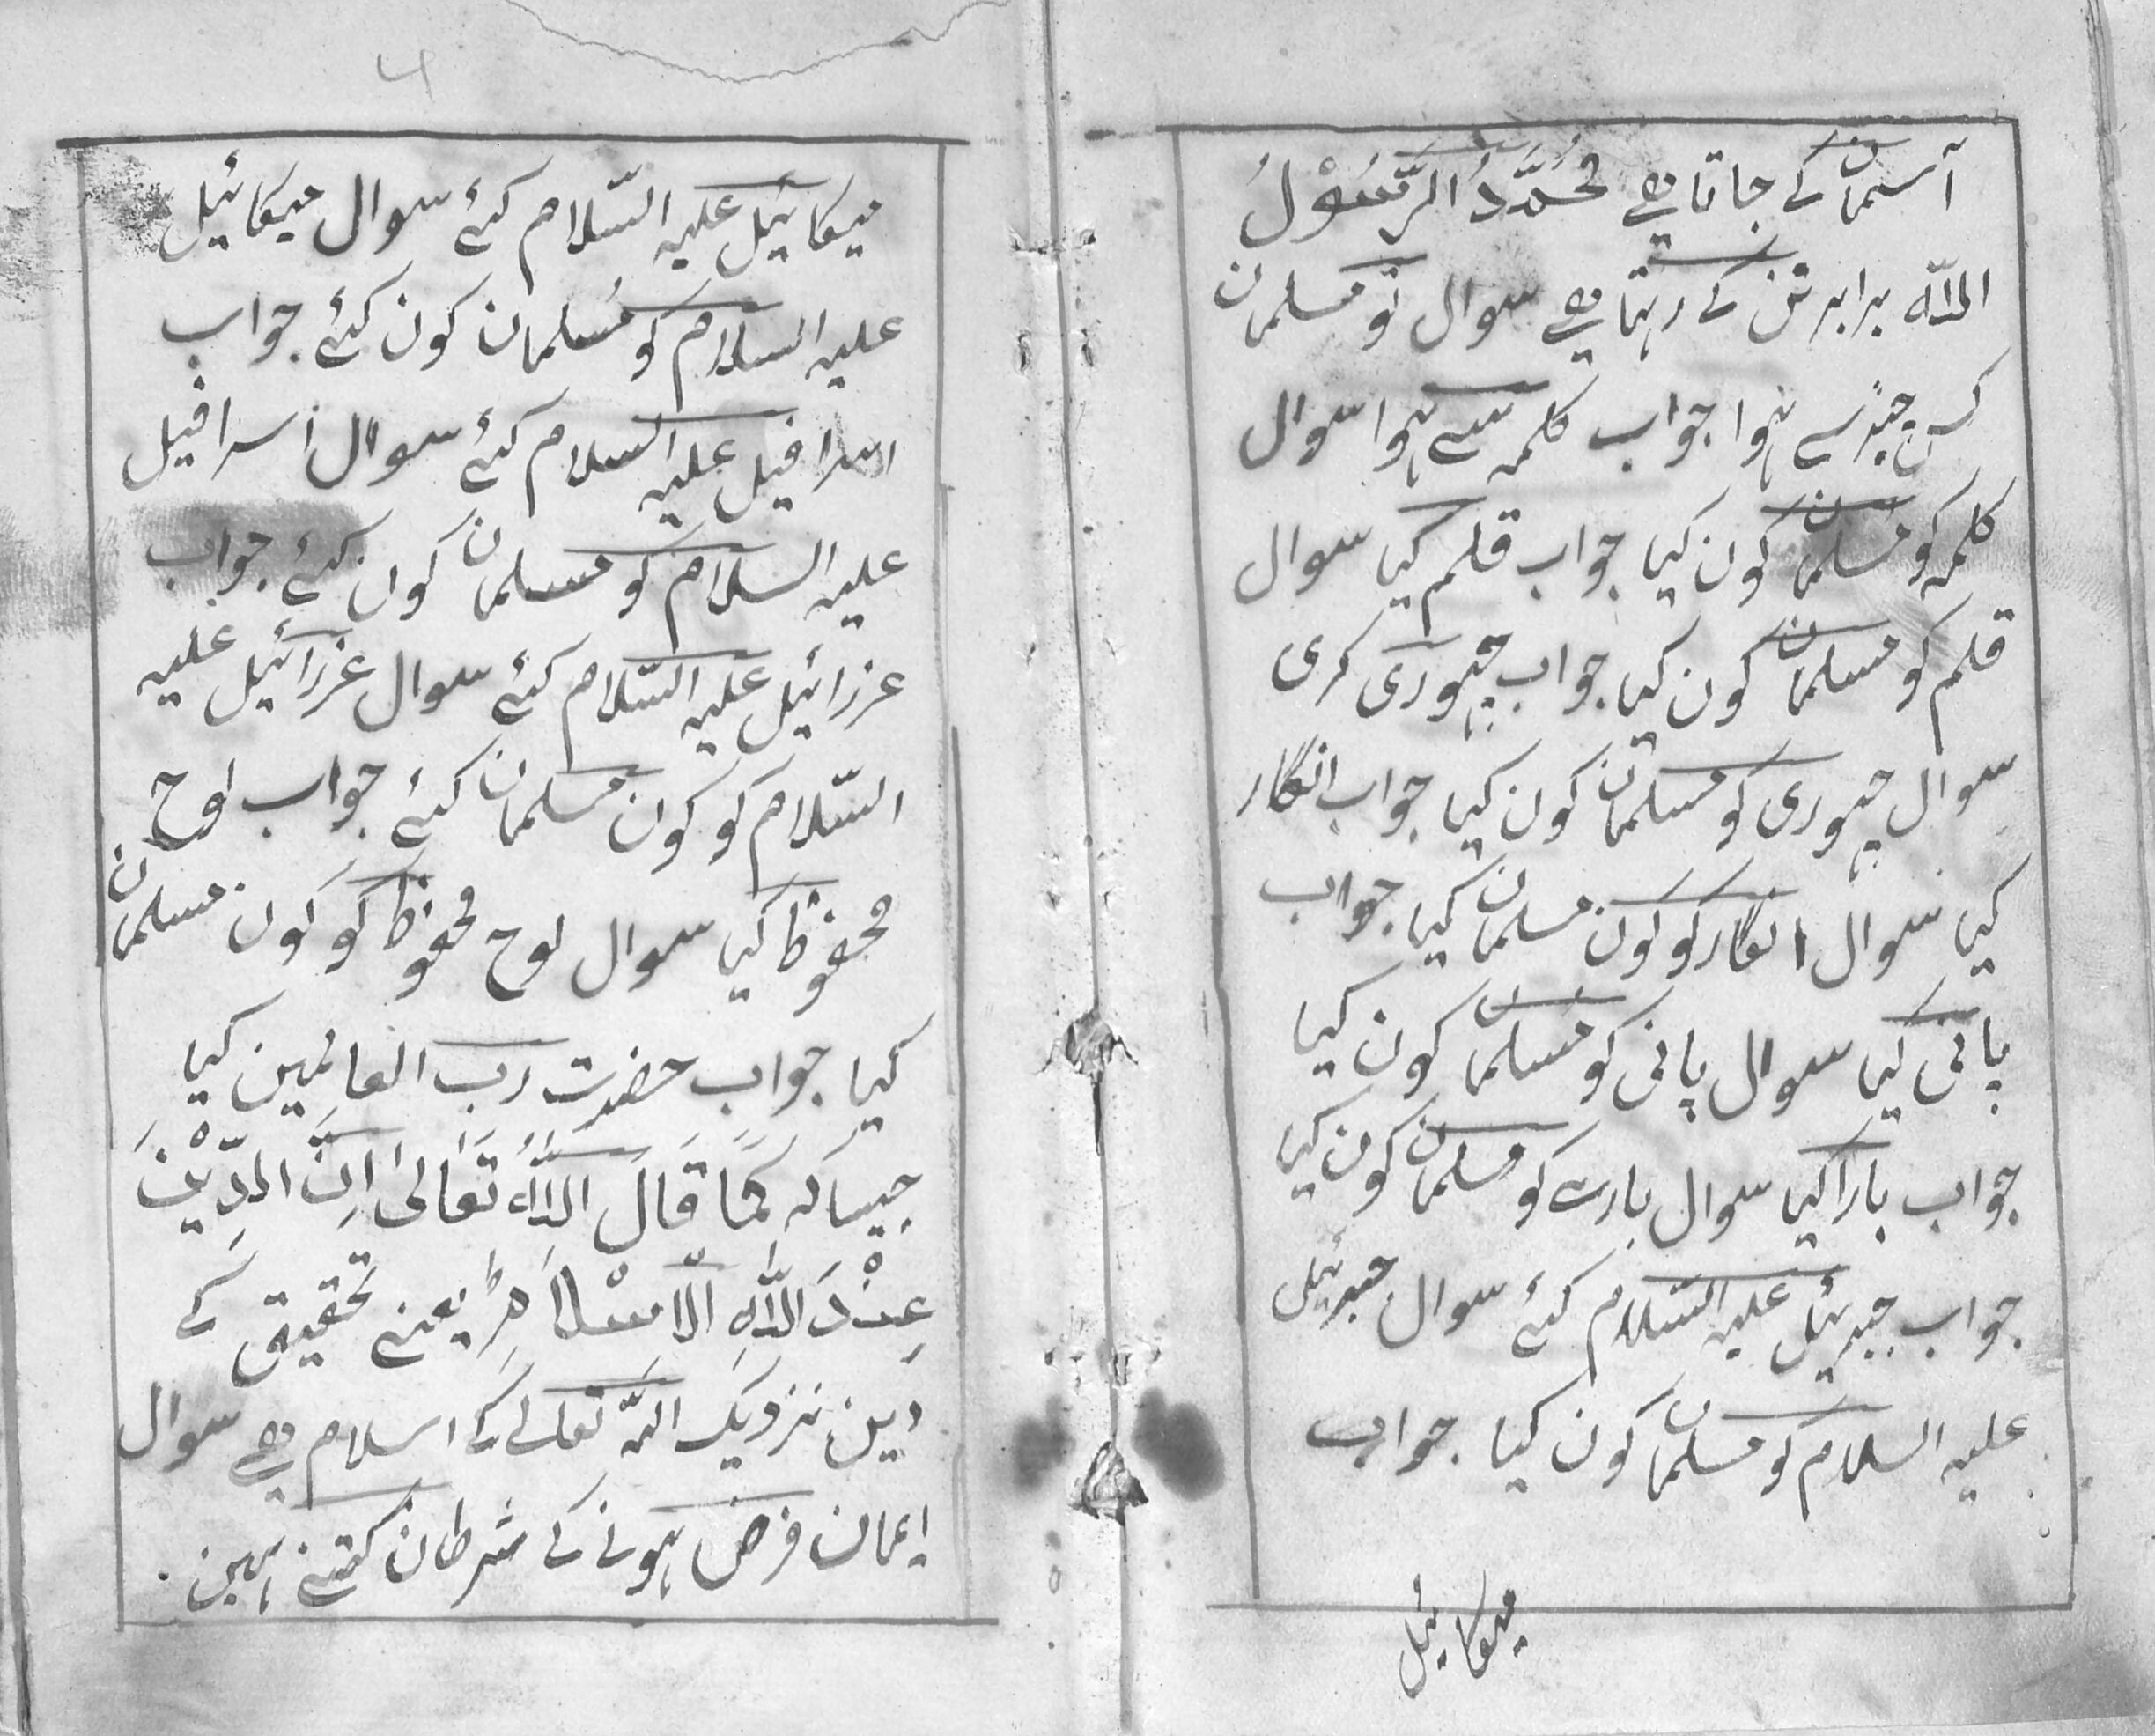 آسمان کے جاتا ہے مُحَمَّدُ الرَّسُوْلُ
اللّٰہ برابر تن کے رہتا ہے سوال تو مسلمان
کس چیز سے ہوا جواب کلمہ سے ہوا سوال
کلمہ کو مسلمان کون کیا جواب قلم کیا سوال
قلم کو مسلمان کون کیا جواب چہوری کری
سوال چہوری کو مسلمان کون کیا جواب انگار
کیا سوال انگار کو کون مسلمان کیا جواب
پانی کیا سوال پانی کو مسلمان کون کیا
جواب بارا کیا سوال بارے کو مسلمان کون کیا
جواب جبرئیل علیہ السّلام کئے سوال جبرئیل
علیہ السلام کو مسلمان کون کیا جواب
میکائیل
۴
میکائیل علیہ السّلام کئے سوال میکائیل
علیہ السلام کو مُسلمان کون کئے جواب
اسرافیل علیہ السلام کئے سوال اسرافیل
علیہ السلام کو مسلمان کون کئے جواب
عزرائیل علیہ السّلام کئے سوال عزرائیل علیہ
السّلام کو کون مسلمان کئے جواب لوح
محفوظ کیا سوال لوح محفوظ کو کون مسلمان
کیا جواب حضرت رب العالمین کیا
جیسا کہ کَمَا قَالَ اللّٰہُ تَعَالیٰ اِنَّ الدِّیْنَ
عِنْدَ اللّٰہِ الْاِسْلَامِ ط یعنے تحقیق کے
دین نزدیک اللّہ تعالے کے اسلام ہے سوال
ایمان فرض ہونے کے شرطان کتنے ہین